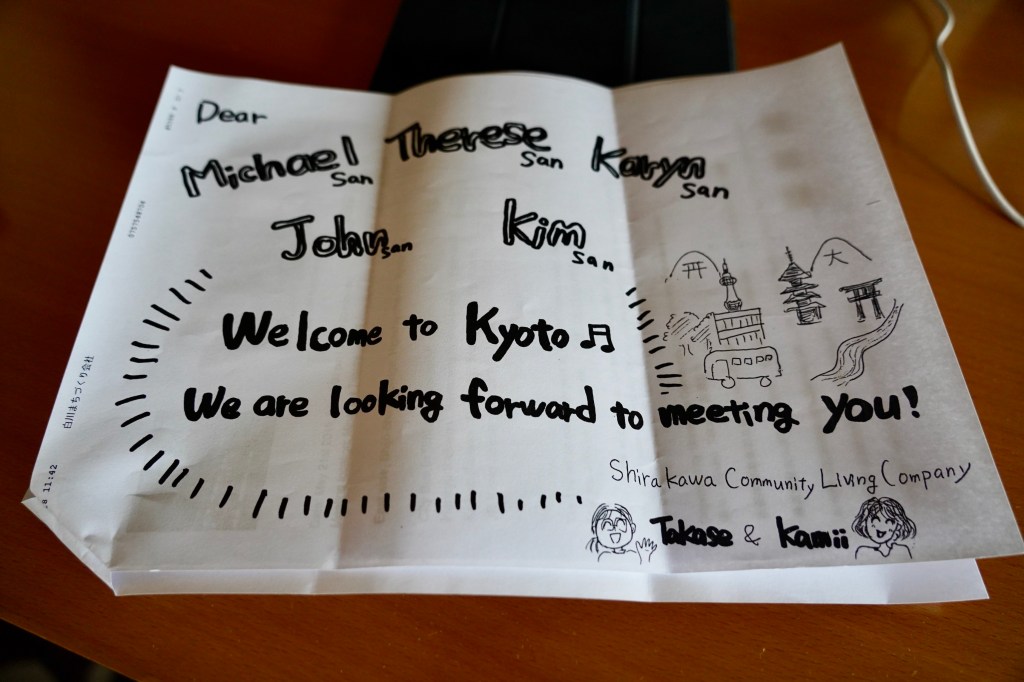 Dear
Michael San Therese San Karyn San
John san Kim San
Welcome to Kyoto ♫
We are looking forward to meeting you!
Shirakawa Community Living Company
Takase & Kamii
开 大
白川まちづくり会社
11:42